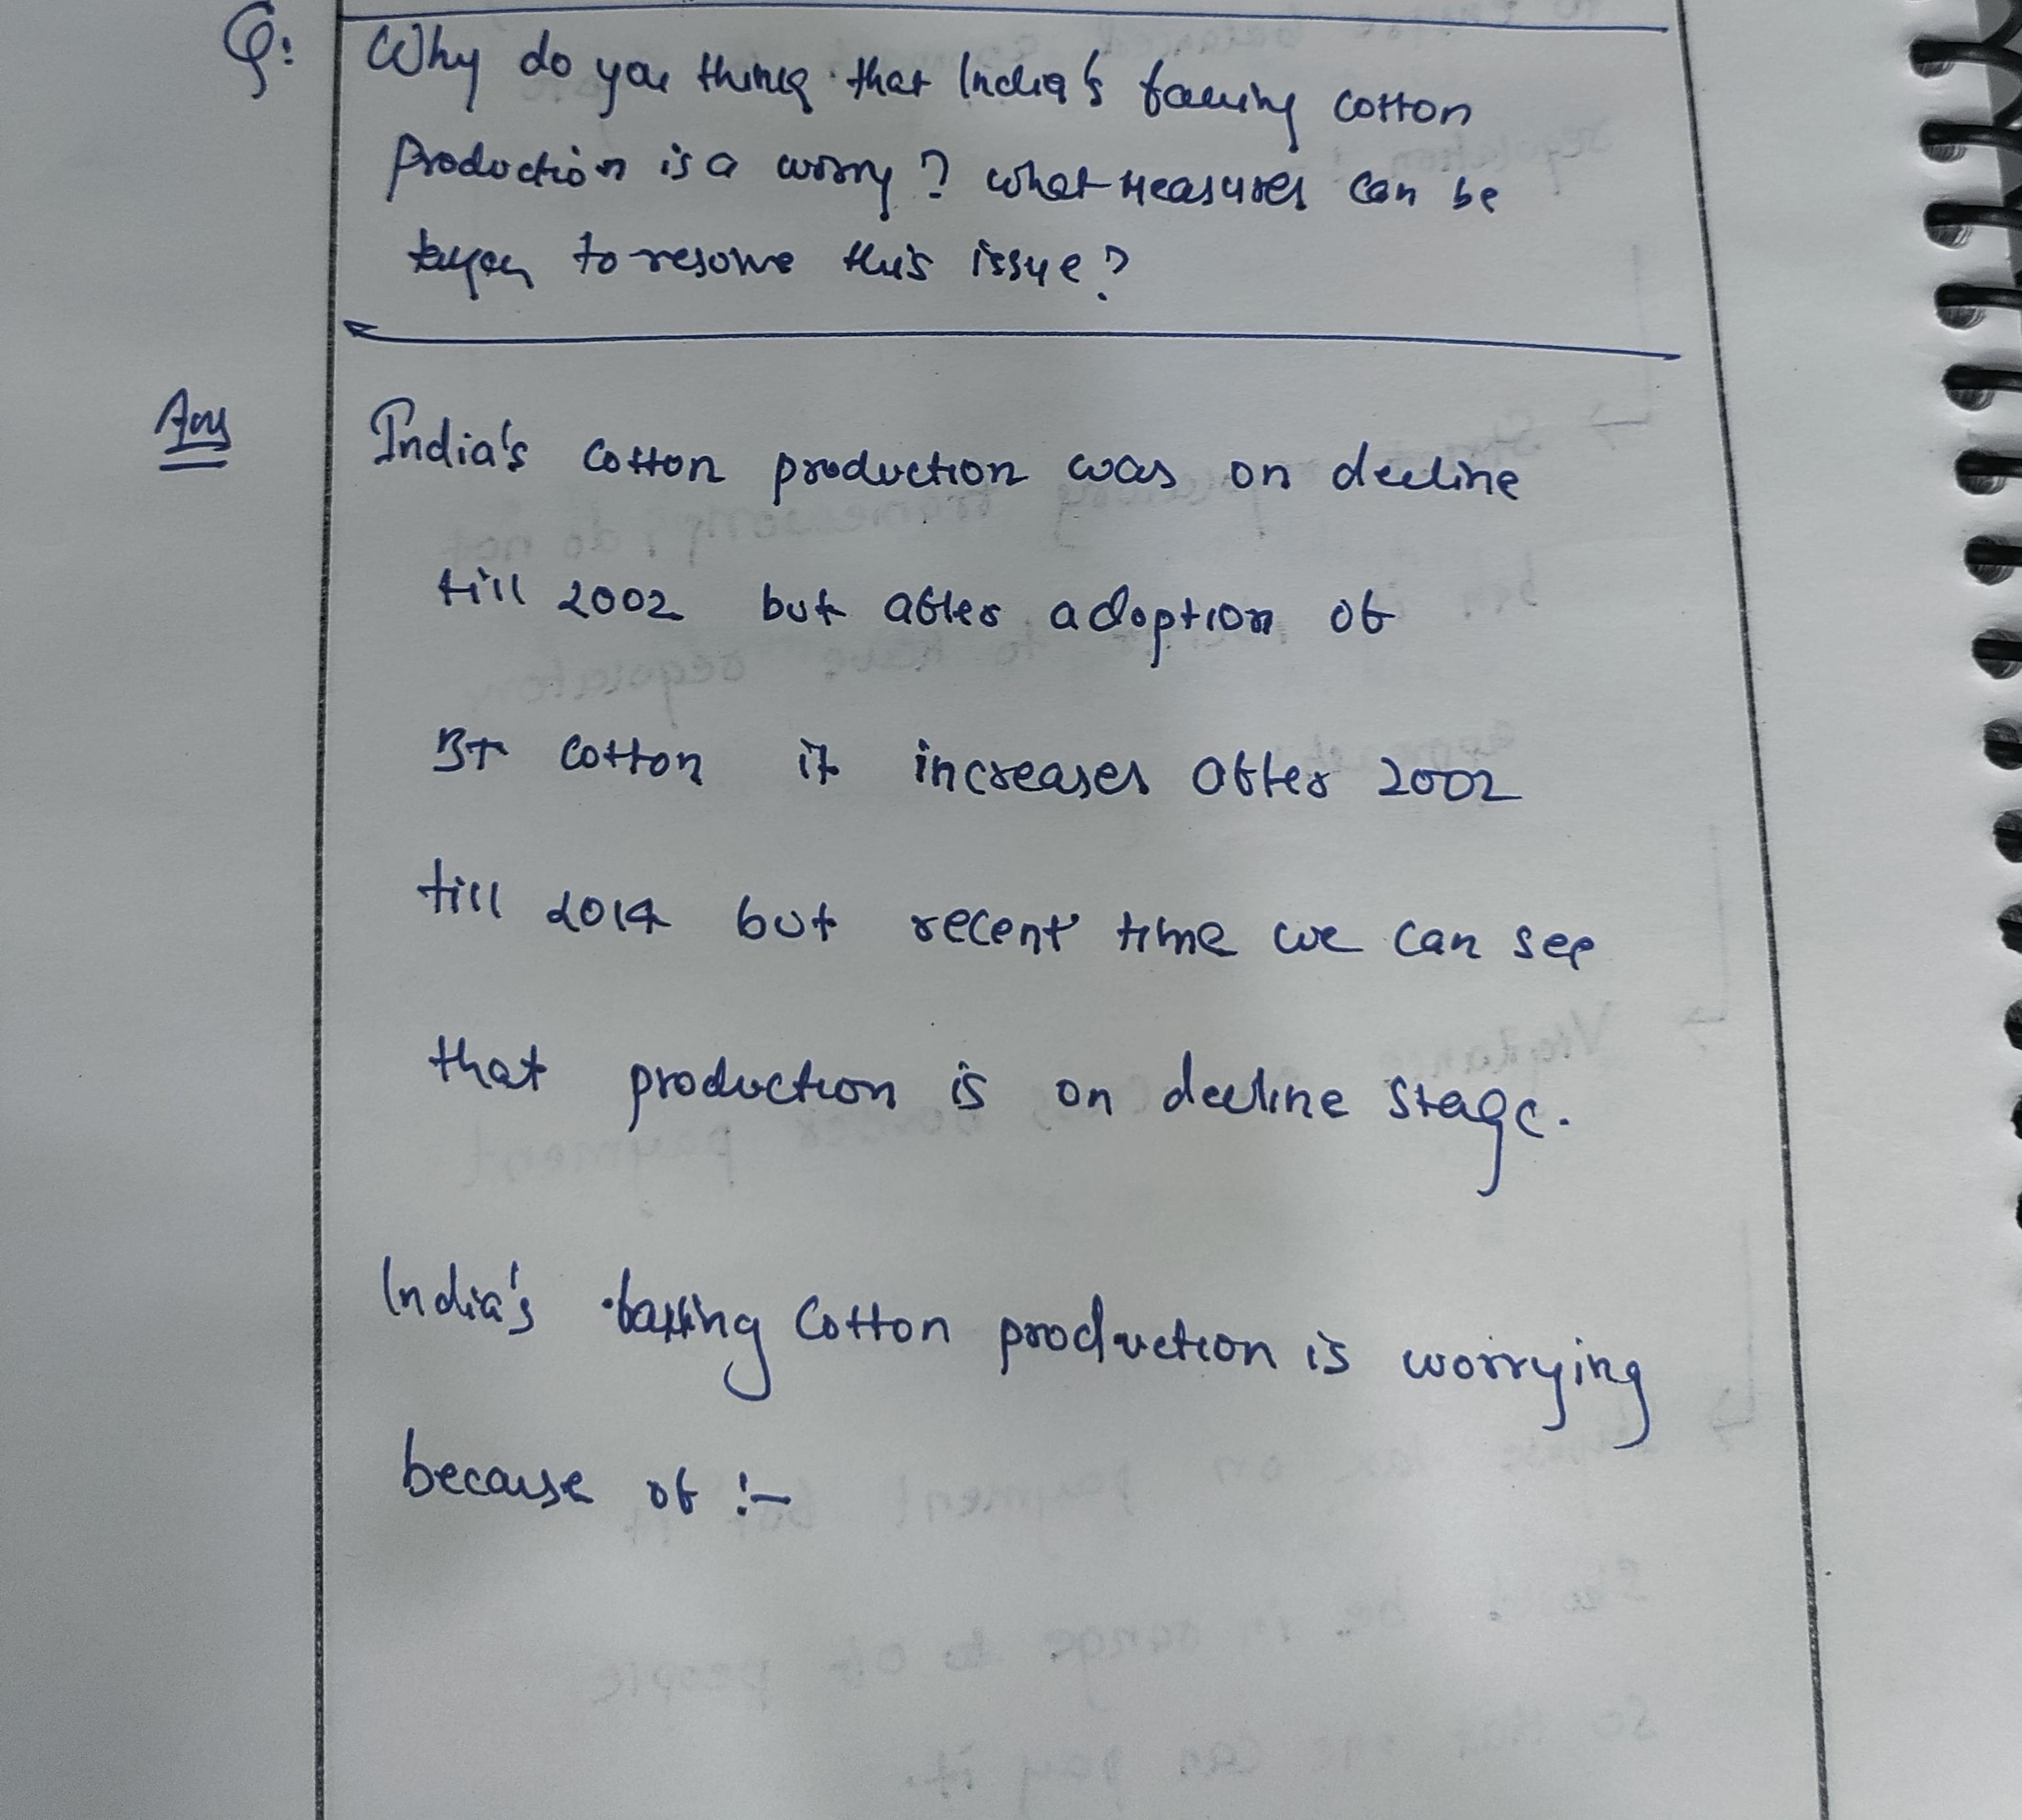 Q: Why do you think that India's falling cotton
production is a worry? What measures can be
taken to resolve this issue?
Ans India's cotton production was on decline
till 2002 but after adoption of
BT cotton it increases after 2002
till 2014 but recent time we can see
that production is on decline stage.
India's falling cotton production is worrying
because of :-